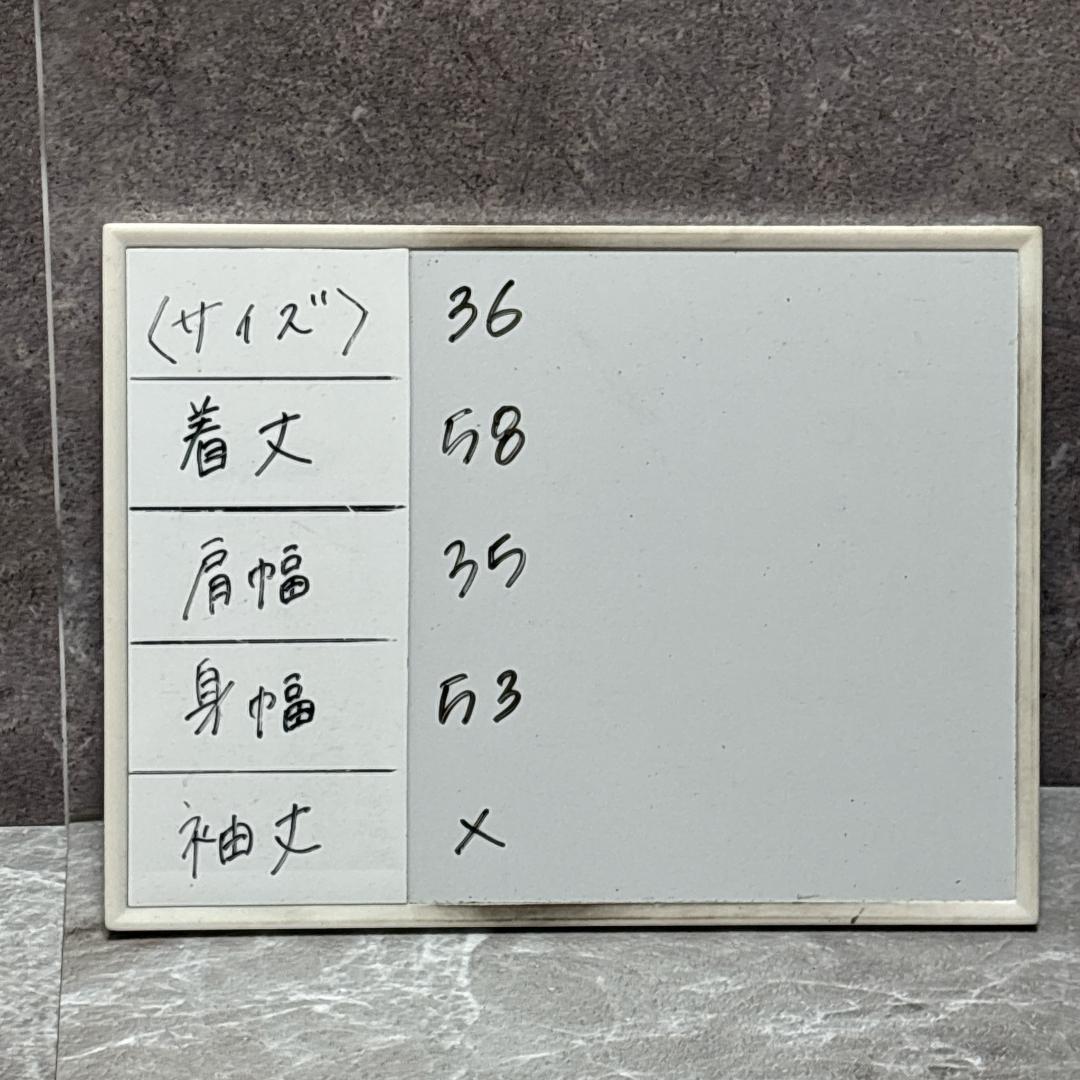 〈サイズ〉 36
着丈 58
肩幅 35
身幅 53
袖丈 ×